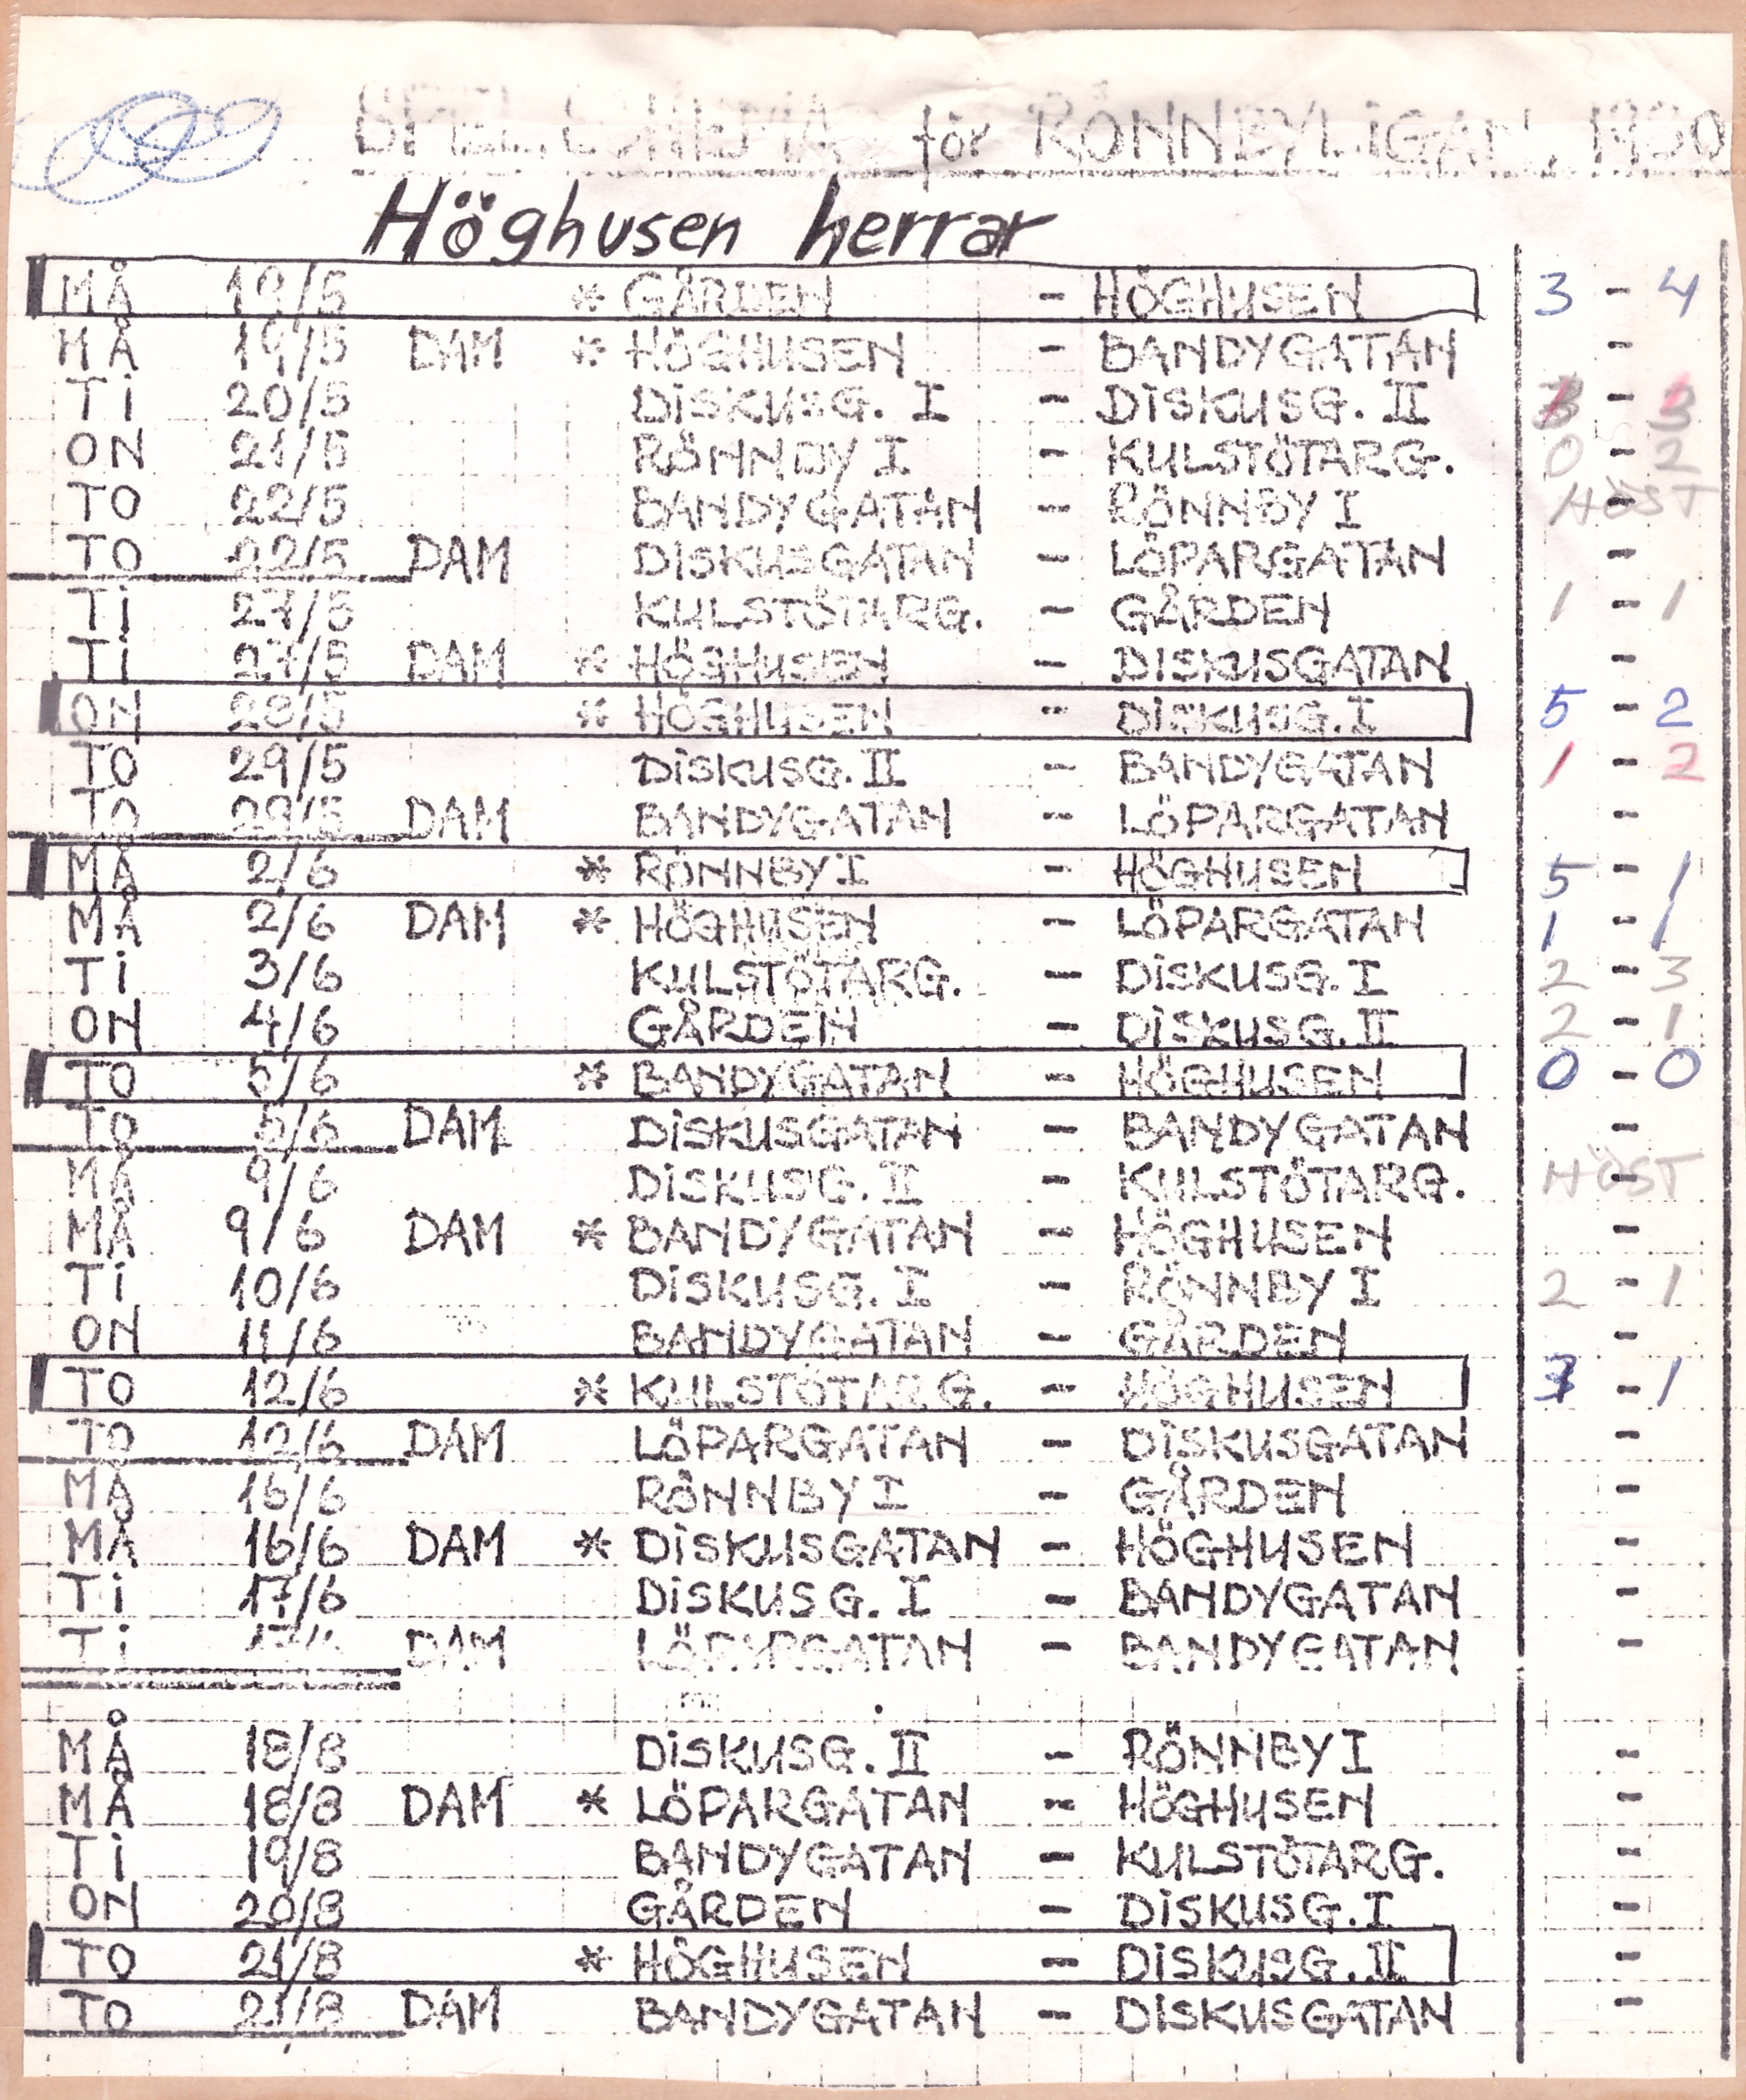 SPEL SCHEMA för RÖNNBYLIGAN 1980
Höghusen herrar
MÅ 19/5 * GÅRDEN - HÖGHUSEN 3 - 4
MÅ 19/5 DAM * HÖGHUSEN - BANDYGATAN -
Ti 20/5 DiSKUSG. I - DiSKUSG. II -
ON 21/5 RÖNNBY I - KULSTÖTARG. 0 - 2
TO 22/5 BANDYGATAN - RÖNNBY I HÖST
TO 22/5 DAM DiSKUSGATAN - LÖPARGATAN -
Ti 27/5 KULSTÖTARG. - GÅRDEN 1 - 1
Ti 27/5 DAM * HÖGHUSEN - DISKUSGATAN -
ON 28/5 * HÖGHUSEN - DiSKUSG. I 5 - 2
TO 29/5 DiSKUSG. II - BANDYGATAN 1 - 2
TO 29/5 DAM BANDYGATAN - LÖPARGATAN -
MÅ 2/6 * RÖNNBY I - HÖGHUSEN 5 - 1
MÅ 2/6 DAM * HÖGHUSEN - LÖPARGATAN 1 - 1
Ti 3/6 KULSTÖTARG. - DiSKUSG. I 2 - 3
ON 4/6 GÅRDEN - DiSKUSG. II 2 - 1
TO 5/6 * BANDYGATAN - HÖGHUSEN 0 - 0
TO 5/6 DAM DiSKUSGATAN - BANDYGATAN -
MÅ 9/6 DiSKUSG. II - KULSTÖTARG. HÖST
MÅ 9/6 DAM * BANDYGATAN - HÖGHUSEN -
Ti 10/6 DiSKUSG. I - RÖNNBY I 2 - 1
ON 11/6 BANDYGATAN - GÅRDEN -
TO 12/6 * KULSTÖTARG. - HÖGHUSEN - 1
TO 12/6 DAM LÖPARGATAN - DiSKUSGATAN -
MÅ 16/6 RÖNNBY I - GÅRDEN -
MÅ 16/6 DAM * DiSKUSGATAN - HÖGHUSEN -
Ti 17/6 DiSKUSG. I - BANDYGATAN -
Ti 17/6 DAM LÖPARGATAN - BANDYGATAN -
MÅ 18/8 DiSKUSG. II - RÖNNBY I -
MÅ 18/8 DAM * LÖPARGATAN - HÖGHUSEN -
Ti 19/8 BANDYGATAN - KULSTÖTARG. -
ON 20/8 GÅRDEN - DiSKUSG. I -
TO 21/8 * HÖGHUSEN - DiSKUSG. II -
TO 21/8 DAM BANDYGATAN - DiSKUSGATAN -